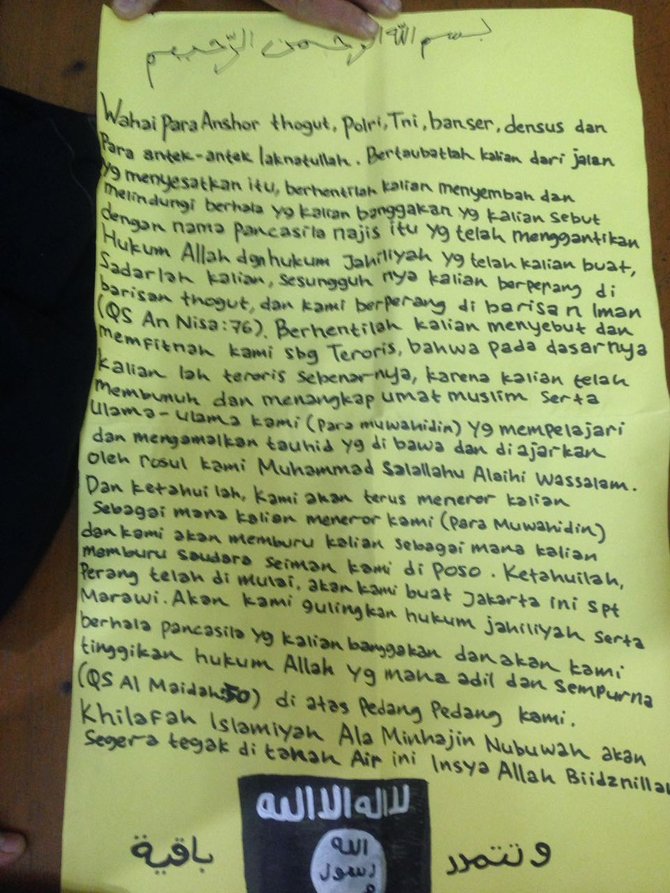 بسم الله الرحمن الرحيم
Wahai Para Anshor thogut, Polri, Tni, banser, densus dan
Para antek-antek laknatullah. Bertaubatlah kalian dari jalan
yg menyesatkan itu, berhentilah kalian menyembah dan
melindungi berhala yg kalian banggakan yg kalian sebut
dengan nama pancasila najis itu yg telah menggantikan
Hukum Allah dgn hukum Jahiliyah yg telah kalian buat,
Sadarlah kalian, sesungguh nya kalian berperang di
barisan thogut, dan kami berperang di barisan Iman
(QS An Nisa:76). Berhentilah kalian menyebut dan
memfitnah kami sbg Teroris, bahwa pada dasarnya
kalian lah teroris sebenar-nya, karena kalian telah
membunuh dan menangkap umat muslim serta
Ulama-ulama kami (para muwahidin) yg mempelajari
dan mengamalkan tauhid yg di bawa dan diajarkan
oleh rosul kami Muhammad Salallahu Alaihi Wassalam.
Dan ketahui lah, kami akan terus meneror kalian
Sebagai mana kalian meneror kami (Para Muwahidin)
dan kami akan memburu kalian sebagai mana kalian
memburu saudara seiman kami di Poso. Ketahuilah,
Perang telah di mulai, akan kami buat Jakarta ini spt
Marawi. Akan kami gulingkan hukum jahiliyah serta
berhala pancasila yg kalian banggakan dan akan kami
tinggikan hukum Allah yg mana adil dan sempurna
(QS Al Maidah:50) di atas Pedang Pedang kami.
Khilafah Islamiyah Ala Minhajin Nubuwah akan
Segera tegak di tanah Air ini Insya Allah Biidznillah
لا اله الا الله
الله
رسول
باقية
وتتمدد